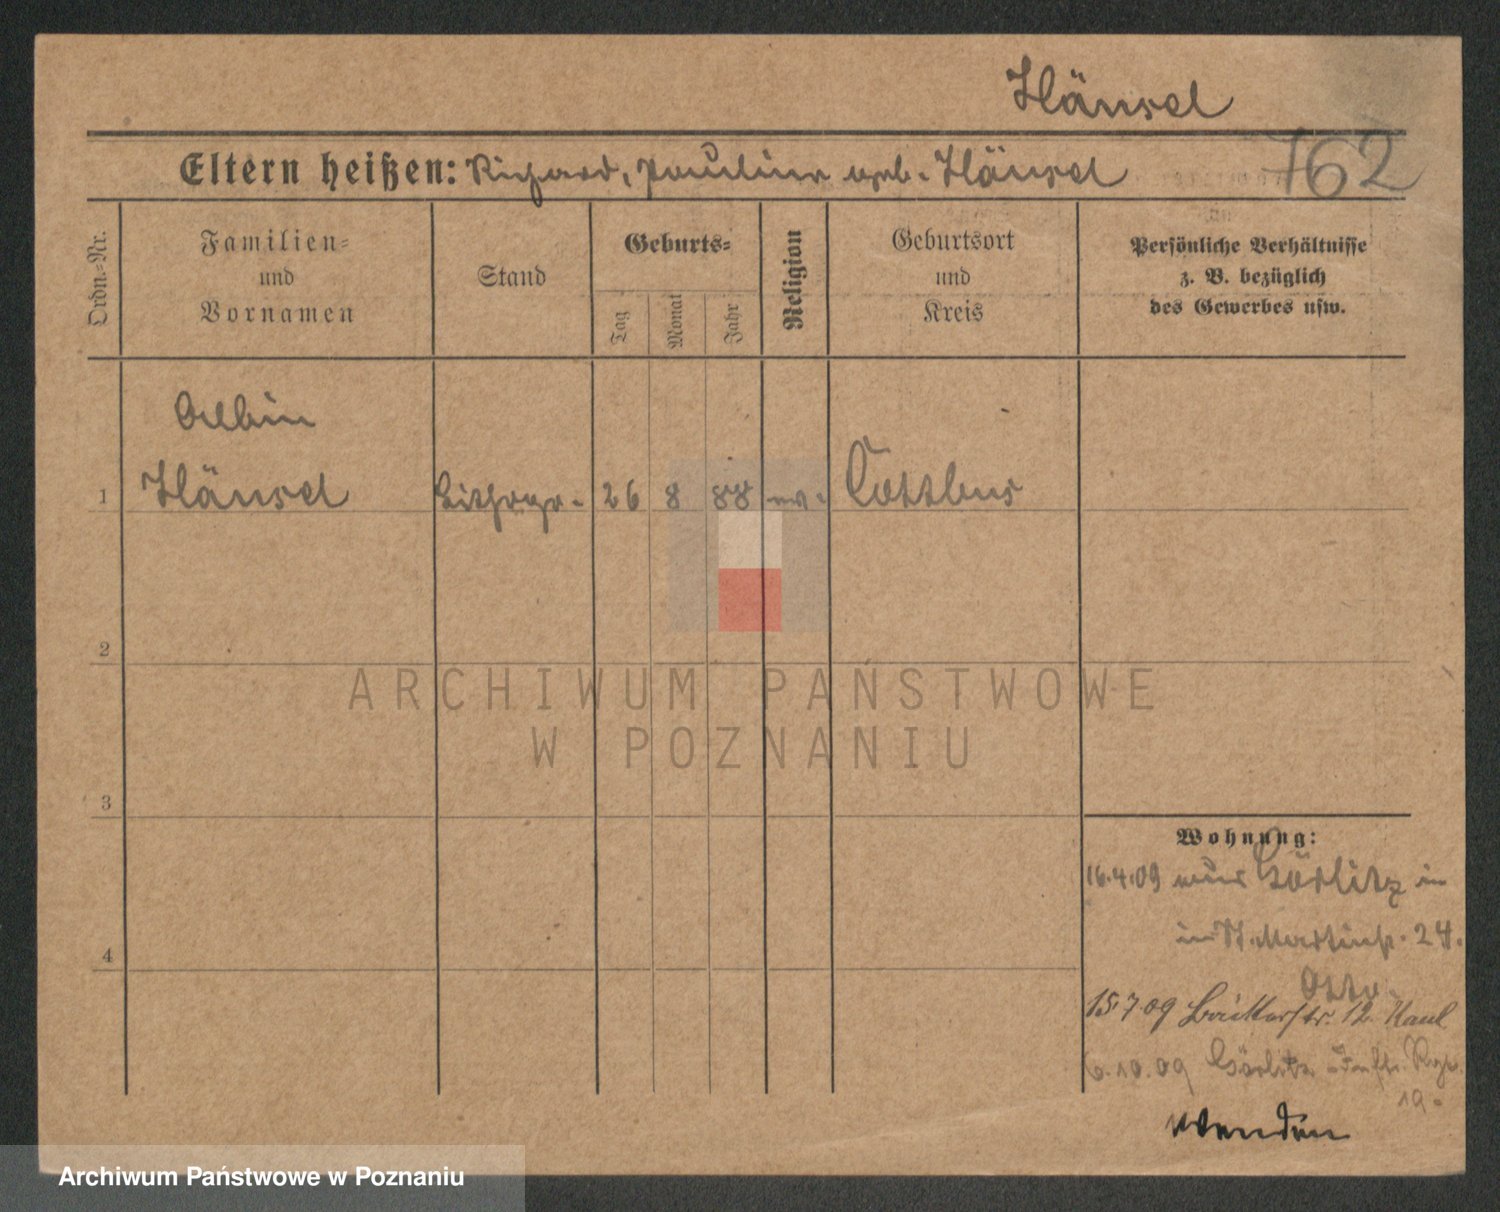 Hänsel
762
Eltern heißen: Richard, Pauline geb. Hänsel
Ordn.=Nr.
Familien= und Vornamen
Stand
Geburts=
Tag
Monat
Jahr
Religion
Geburtsort und Kreis
Persönliche Verhältnisse
z. B. bezüglich
des Gewerbes usw.
Albin
1 Hänsel Lithogr. 26 8 88 ev. Cottbus
2
3
4
Wohnung:
16.4.09 aus Görlitz in
in St. Martinstr. 24.
Otto
15.7.09 Bäckerstr. 12. Kaul
6.10.09 Görlitz Inftr. Rgt.
19.
wenden
ARCHIWUM PAŃSTWOWE
W POZNANIU
Archiwum Państwowe w Poznaniu